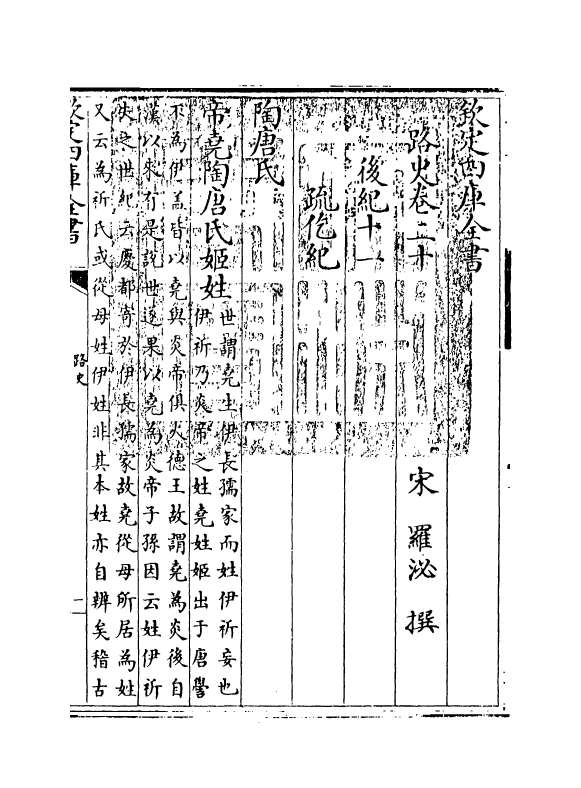 欽定四庫全書
路史卷二十　宋　羅泌　撰
後紀十一
疏仡紀
陶唐氏
帝堯陶唐氏姬姓世謂堯生伊長孺家而姓伊祈妄也
伊祈乃炎帝之姓堯姓姬出于唐嚳
不為伊蓋皆以堯與炎帝俱火德王故謂堯為炎後自
漢以來有是說世遂果以堯為炎帝子孫因云姓伊祈
失之世紀云慶都寄於伊長孺家故堯從母所居為姓
又云為祈氏或從母姓伊姓非其本姓亦自辨矣稽古
欽定四庫全書
路史
一